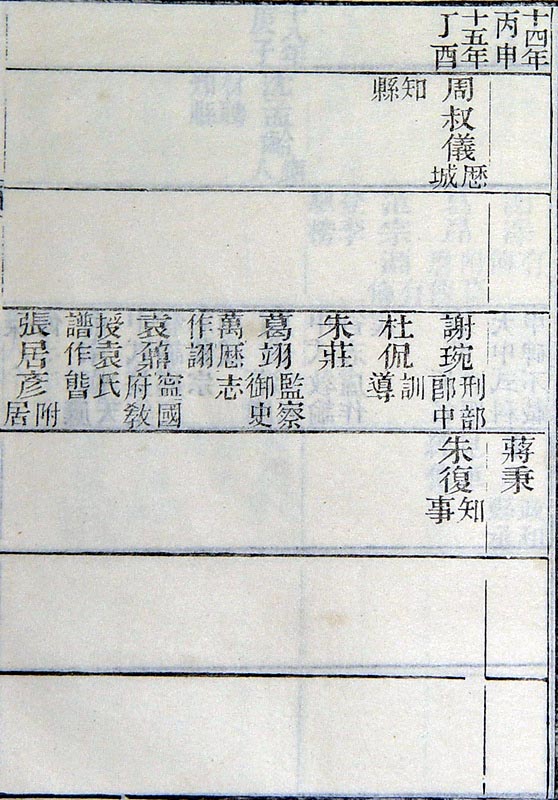 十四年
丙申
蔣秉
十五年
丁酉
周叔儀歷城
知縣
謝琬刑部郎中
朱復知事
杜侃訓導
朱莊
葛翊監察御史
萬歷志作詡
袁鼐寧國府教
授袁氏譜作
張居彥附居